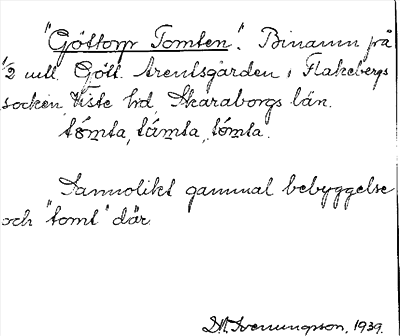 "Göttorp Tomten". Binamn på
1/2 mtl. Gött. Arentsgården i Flakebergs
socken, Viste hd, Skaraborgs län.
tómta, támta, tómta.
Sannolikt gammal bebyggelse
och "tomt" där.
D.N. Svenningson, 1939.